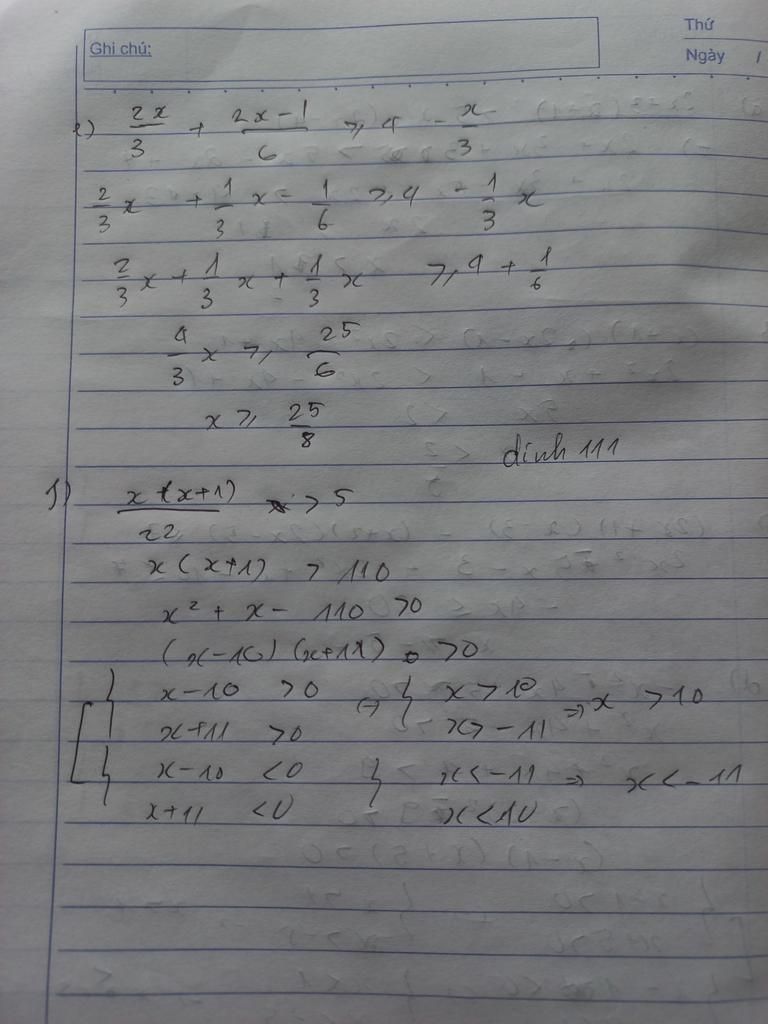 Thứ
Ghi chú:
Ngày /
e) 2x/3 + (2x-1)/6 ≥ 4 - x/3
2/3 x + 1/3 x - 1/6 ≥ 4 - 1/3 x
2/3 x + 1/3 x + 1/3 x ≥ 4 + 1/6
4/3 x ≥ 25/6
x ≥ 25/8
dinh 111
f) x (x+1)/22 > 5
x (x+1) > 110
x² + x - 110 > 0
(x-10) (x+11) > 0
[ { x-10 > 0 <=> { x > 10 => x > 10
x+11 > 0 x > -11
{ x-10 < 0 } x < -11 => x < -11
x+11 < 0 x < 10